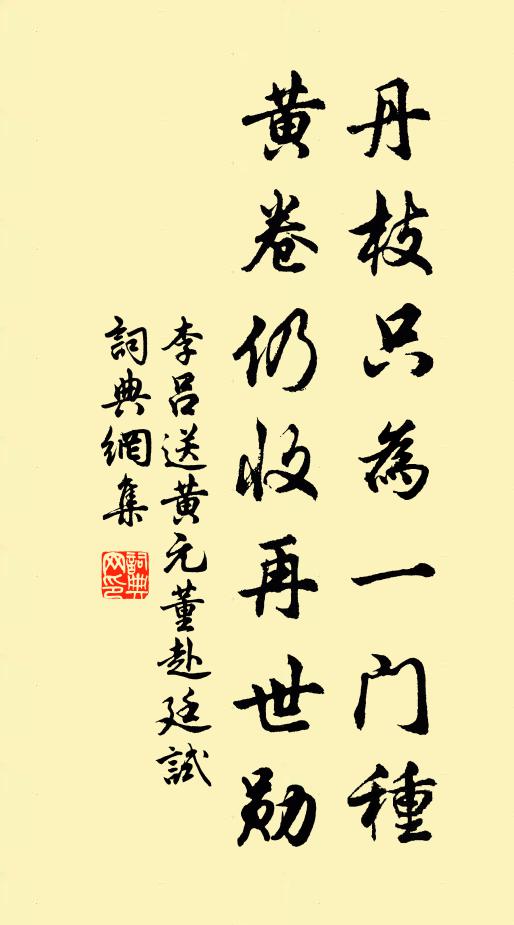 丹枝只為一门種
黄卷仍收再世勋
李呂送黄元董赴廷試
詞典網集
詞典网印